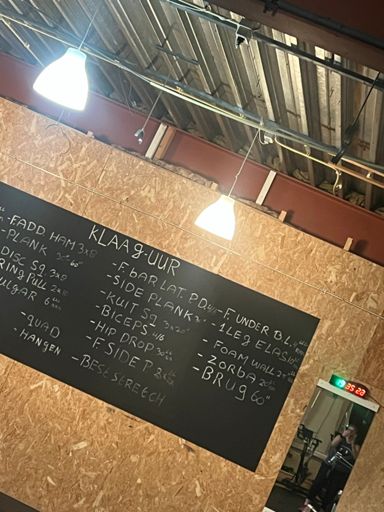 KLAAG-UUR
-FADD HAM 3x8
-PLANK 3x60"
DISC SQ 3x8
RING PULL 2x8
ULGAR 6
-QUAD
-HANGEN
-F.BAR LAT. P.D
-SIDE PLANK
-KUIT SQ 3x20"
-BICEPS 4/6
-HIP DROP 30
-F SIDE P.
-BEST STRETCH
-F UNDER B.L.
-1 LEG ELAS
-FOAM WALL
-ZORBA 20
-BRUG 60"